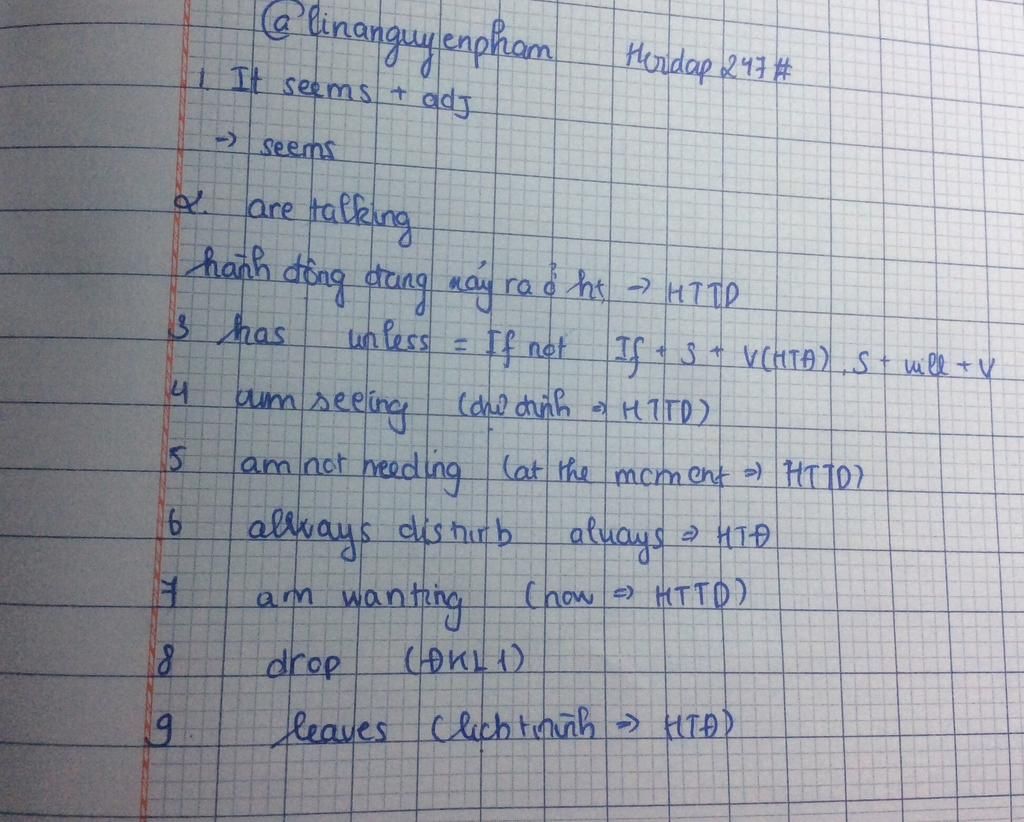 @linanguyenpham Hoidap247#
1. It seems + adj
→ seems
2. are talking
hành động đang xảy ra ở ht → HTTD
3 has unless = If not If + S + V(HTĐ), S + will + V
4 am seeing (chủ định ⇒ HTTD)
5 am not needing (at the moment ⇒ HTTD)
6 always disturb always ⇒ HTĐ
7 am wanting (now ⇒ HTTD)
8 drop (ĐKL1)
9 leaves (lịch trình ⇒ HTĐ)